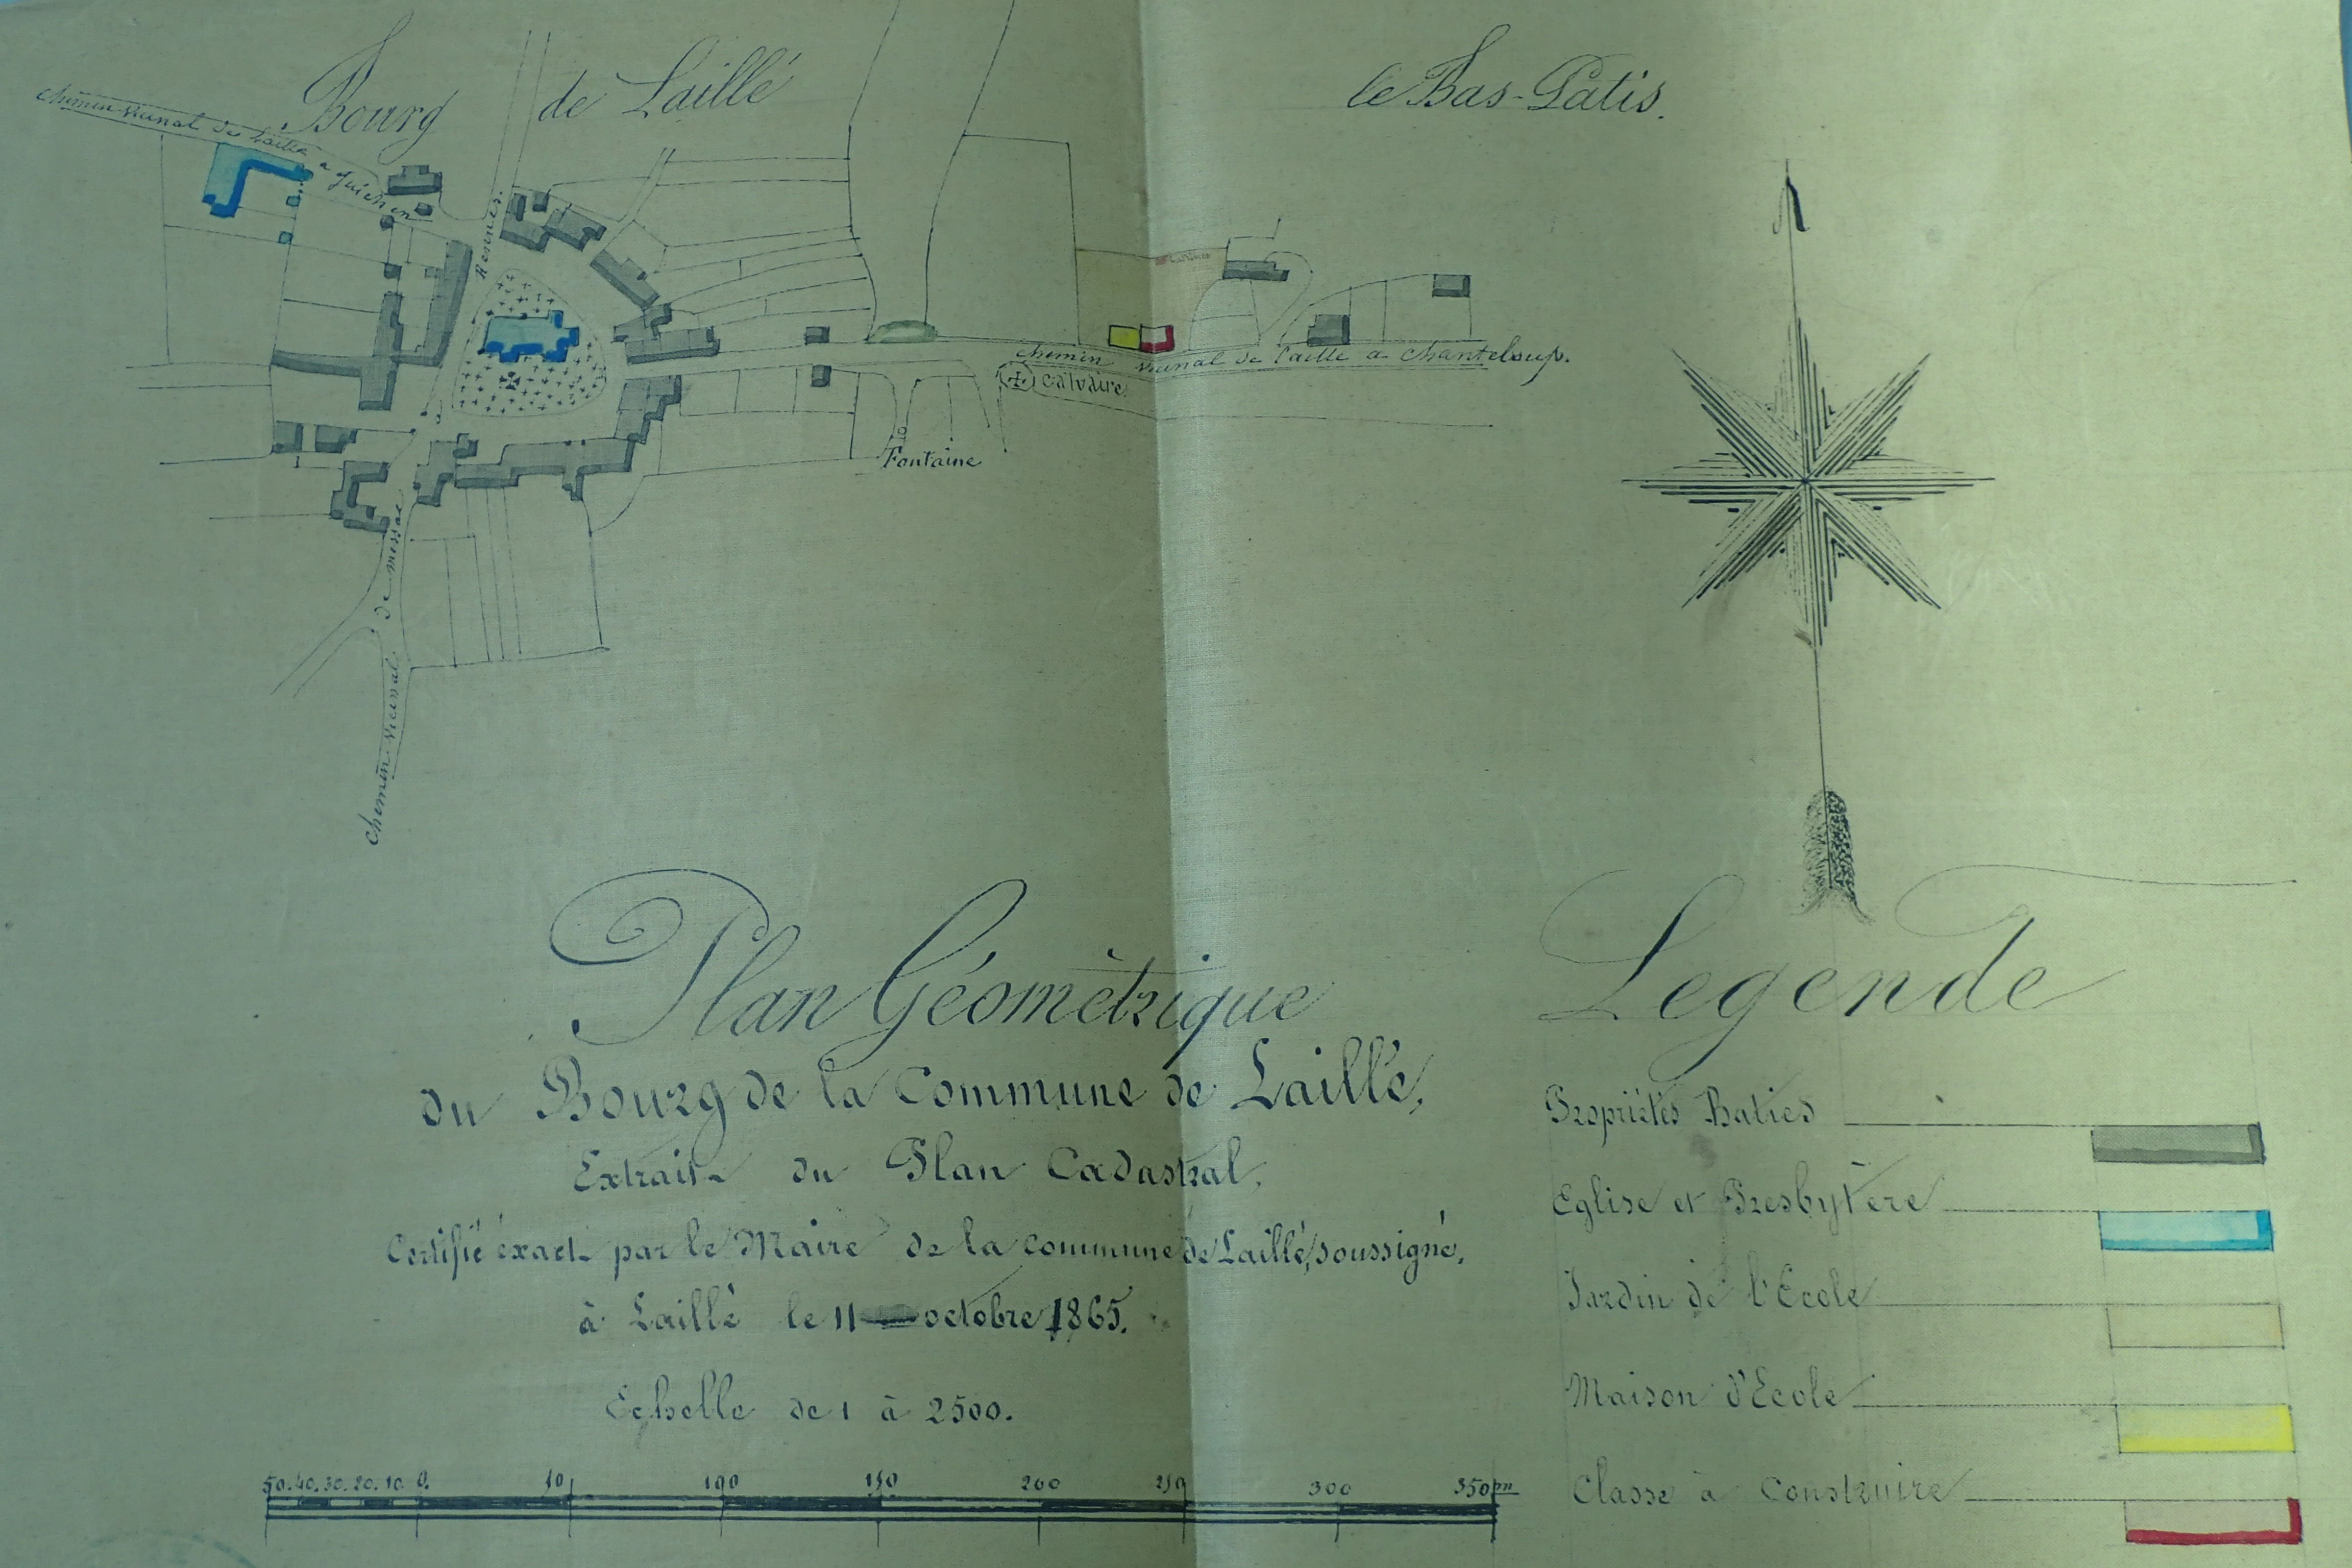 Bourg de Laillé
le Bas-Patis.
chemin vicinal de Laillé a guichen
Rennes.
chemin vicinal de Laillé a Chanteloup.
calvaire
Fontaine
chemin vicinal de messac
Plan Géomètrique
du Bourg de la Commune de Laillé,
Extrait du Plan Cadastral,
Certifié éxact par le Maire de la commune de Laillé, soussigné,
à Laillé le 11 octobre 1865.
Echelle de 1 à 2500.
50. 40. 30. 20. 10. 0. 50 100 150 200 250 300 350 m
Legende
Propriétés Baties
Eglise et Presbytère
Jardin de l'Ecole
Maison d'Ecole
Classe à Construire